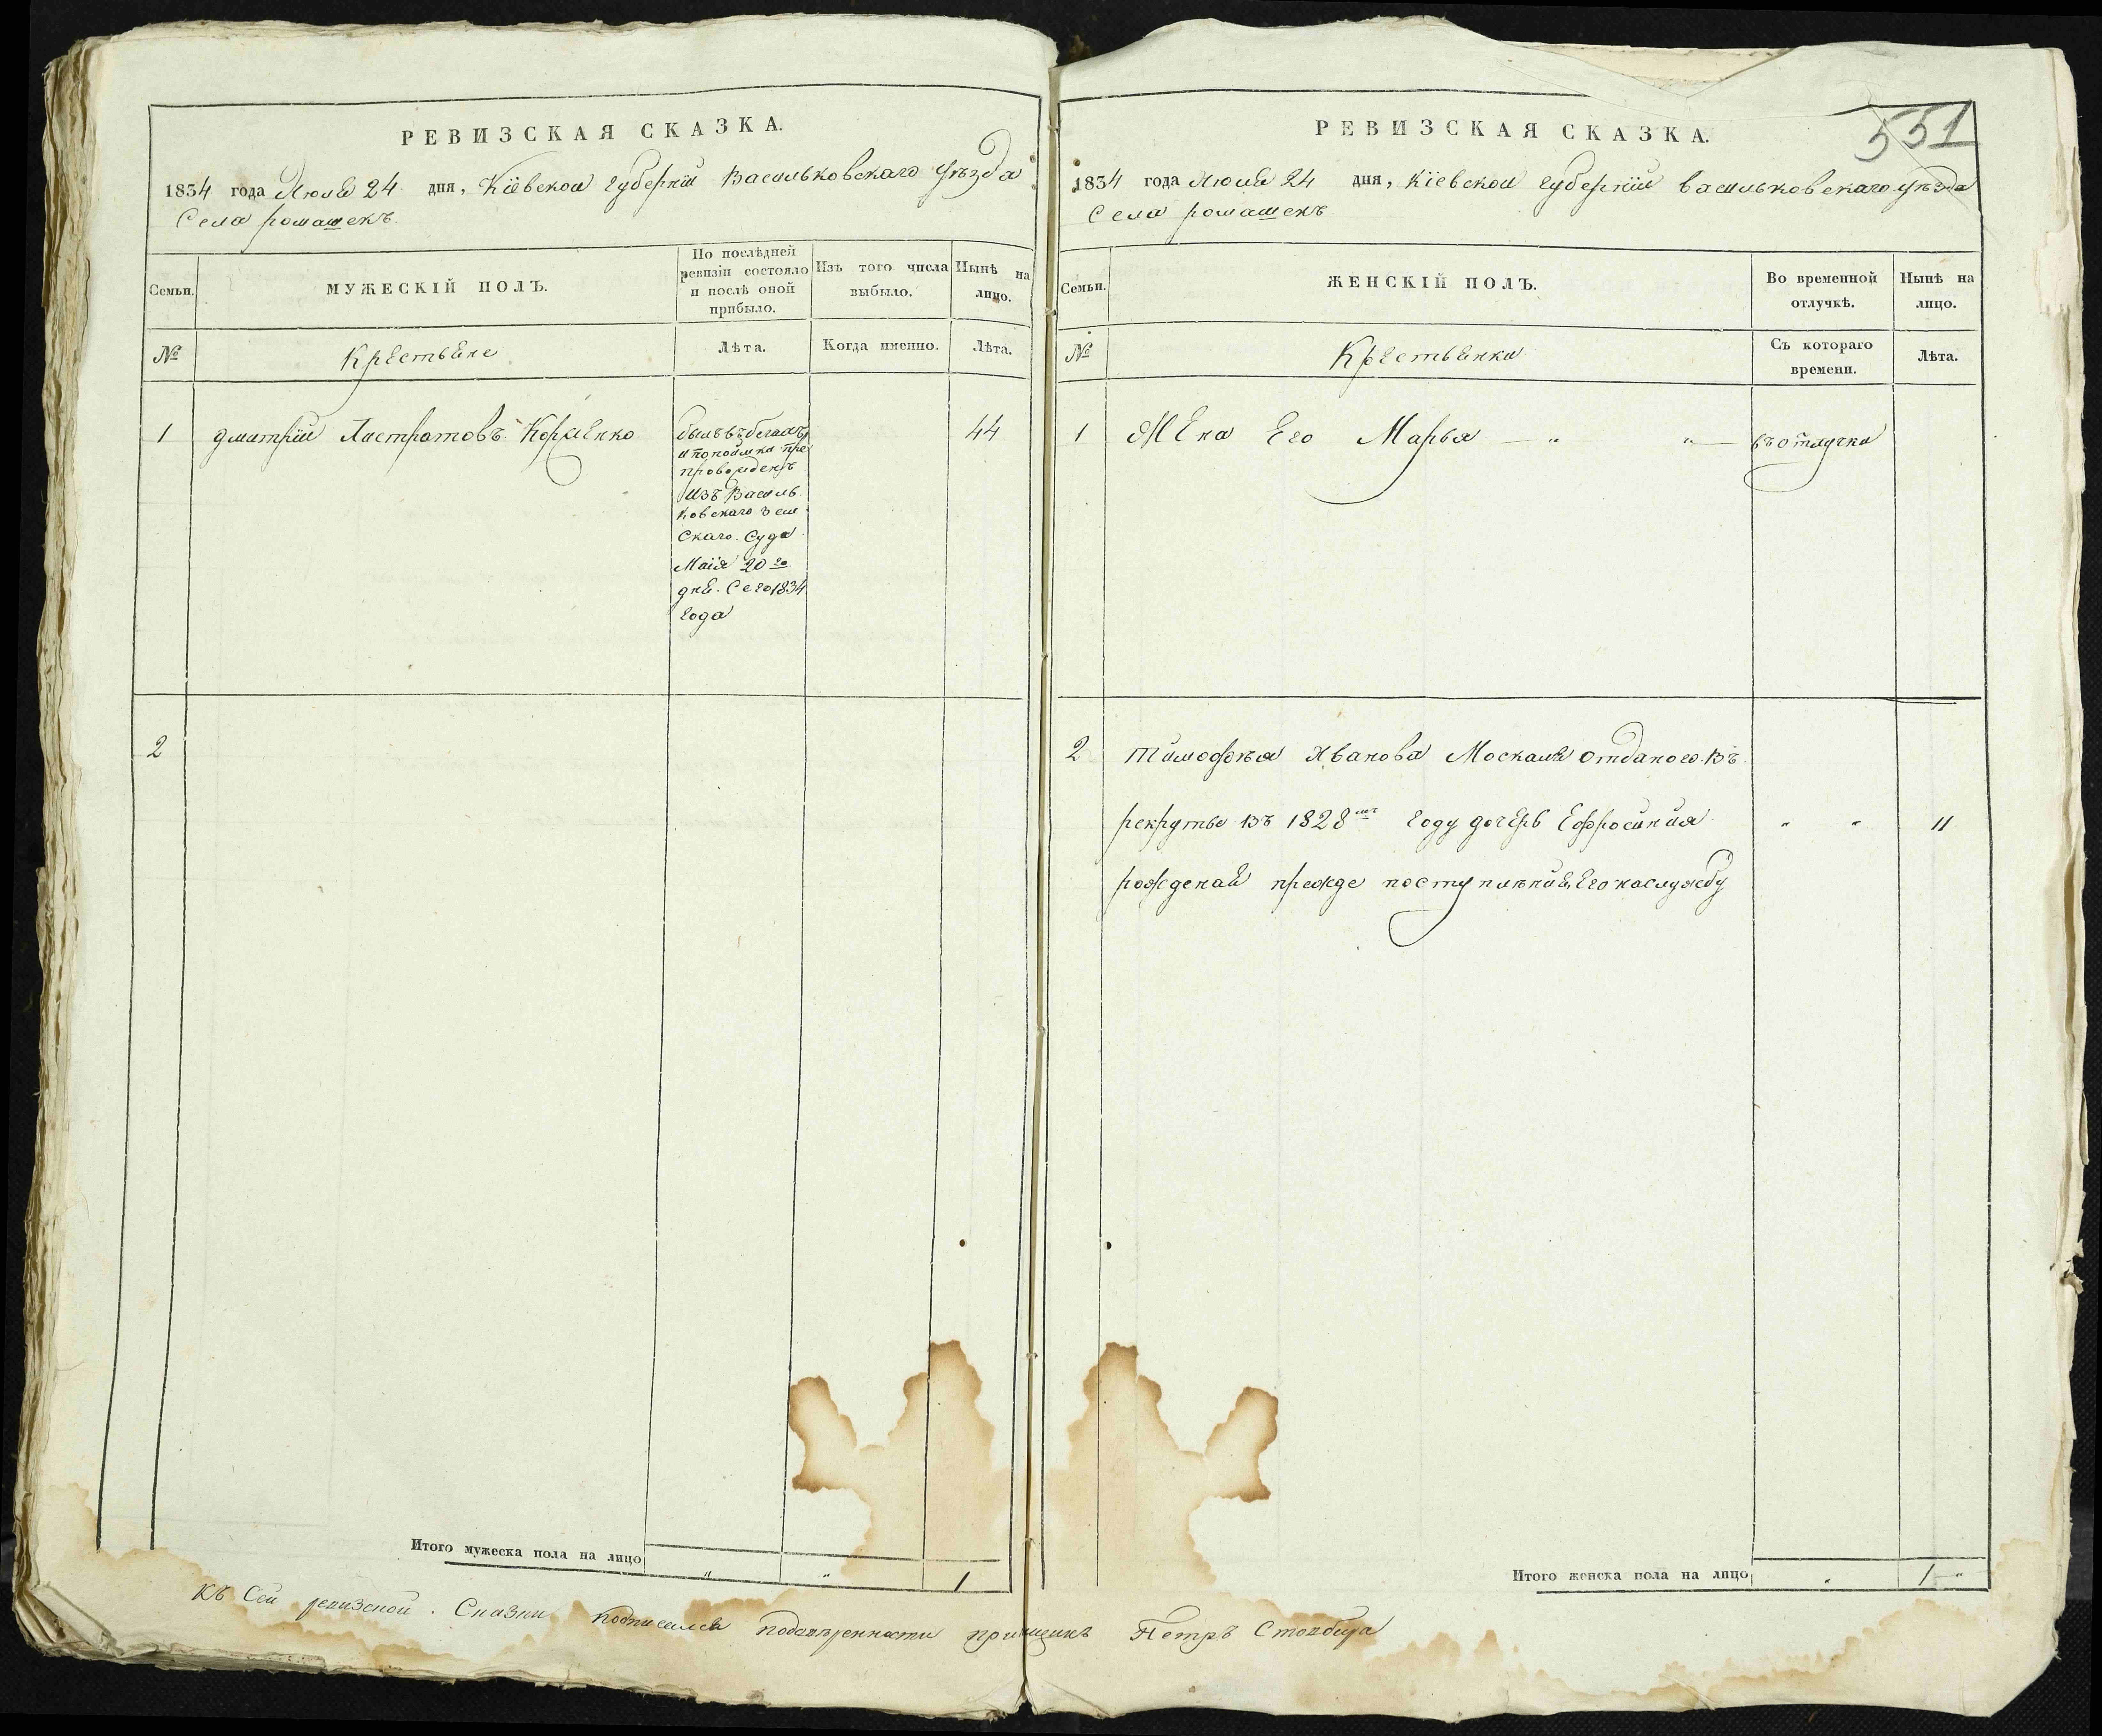 РЕВИЗСКАЯ СКАЗКА.
1834 года Июля 24 дня, Кіевской губерніи Васильковскаго уѣзда
Села ромашекъ
Семьи.
МУЖЕСКІЙ ПОЛЪ.
По послѣдней
ревизіи состояло
и послѣ оной
прибыло.
Изъ того числа
выбыло.
Нынѣ на
лицо.
№
Крестьяне
Лѣта.
Когда именно.
Лѣта.
1
дмитрій Листратовъ
44
былъ въ бегахъ
и по поимки пре
провожденъ
изъ Василь
ковскаго зем
скаго Суда
Маія 20го
дня. Сего 1834
года
2
Итого мужеска пола на лицо
" " 1
551
РЕВИЗСКАЯ СКАЗКА.
1834 года Июля 24 дня, Кіевской губерніи васильковскаго уѣзда
Села ромашекъ
Семьи.
ЖЕНСКІЙ ПОЛЪ.
Во временной
отлучкѣ.
Нынѣ на
лицо.
№
Крестьянки
Съ котораго
времени.
Лѣта.
1 Жена Его Марья — " "— въ отлучки
2 Тимофѣя Иванова Москаля отданого въ
рекруты въ 1828мъ году дочерь Ефросиния " " 11
рожденая прежде поступлѣния Его на службу
Итого женска пола на лицо
" 1 "
Къ Сей ревизской. Сказки подписался по доверенности прикащикъ Петръ